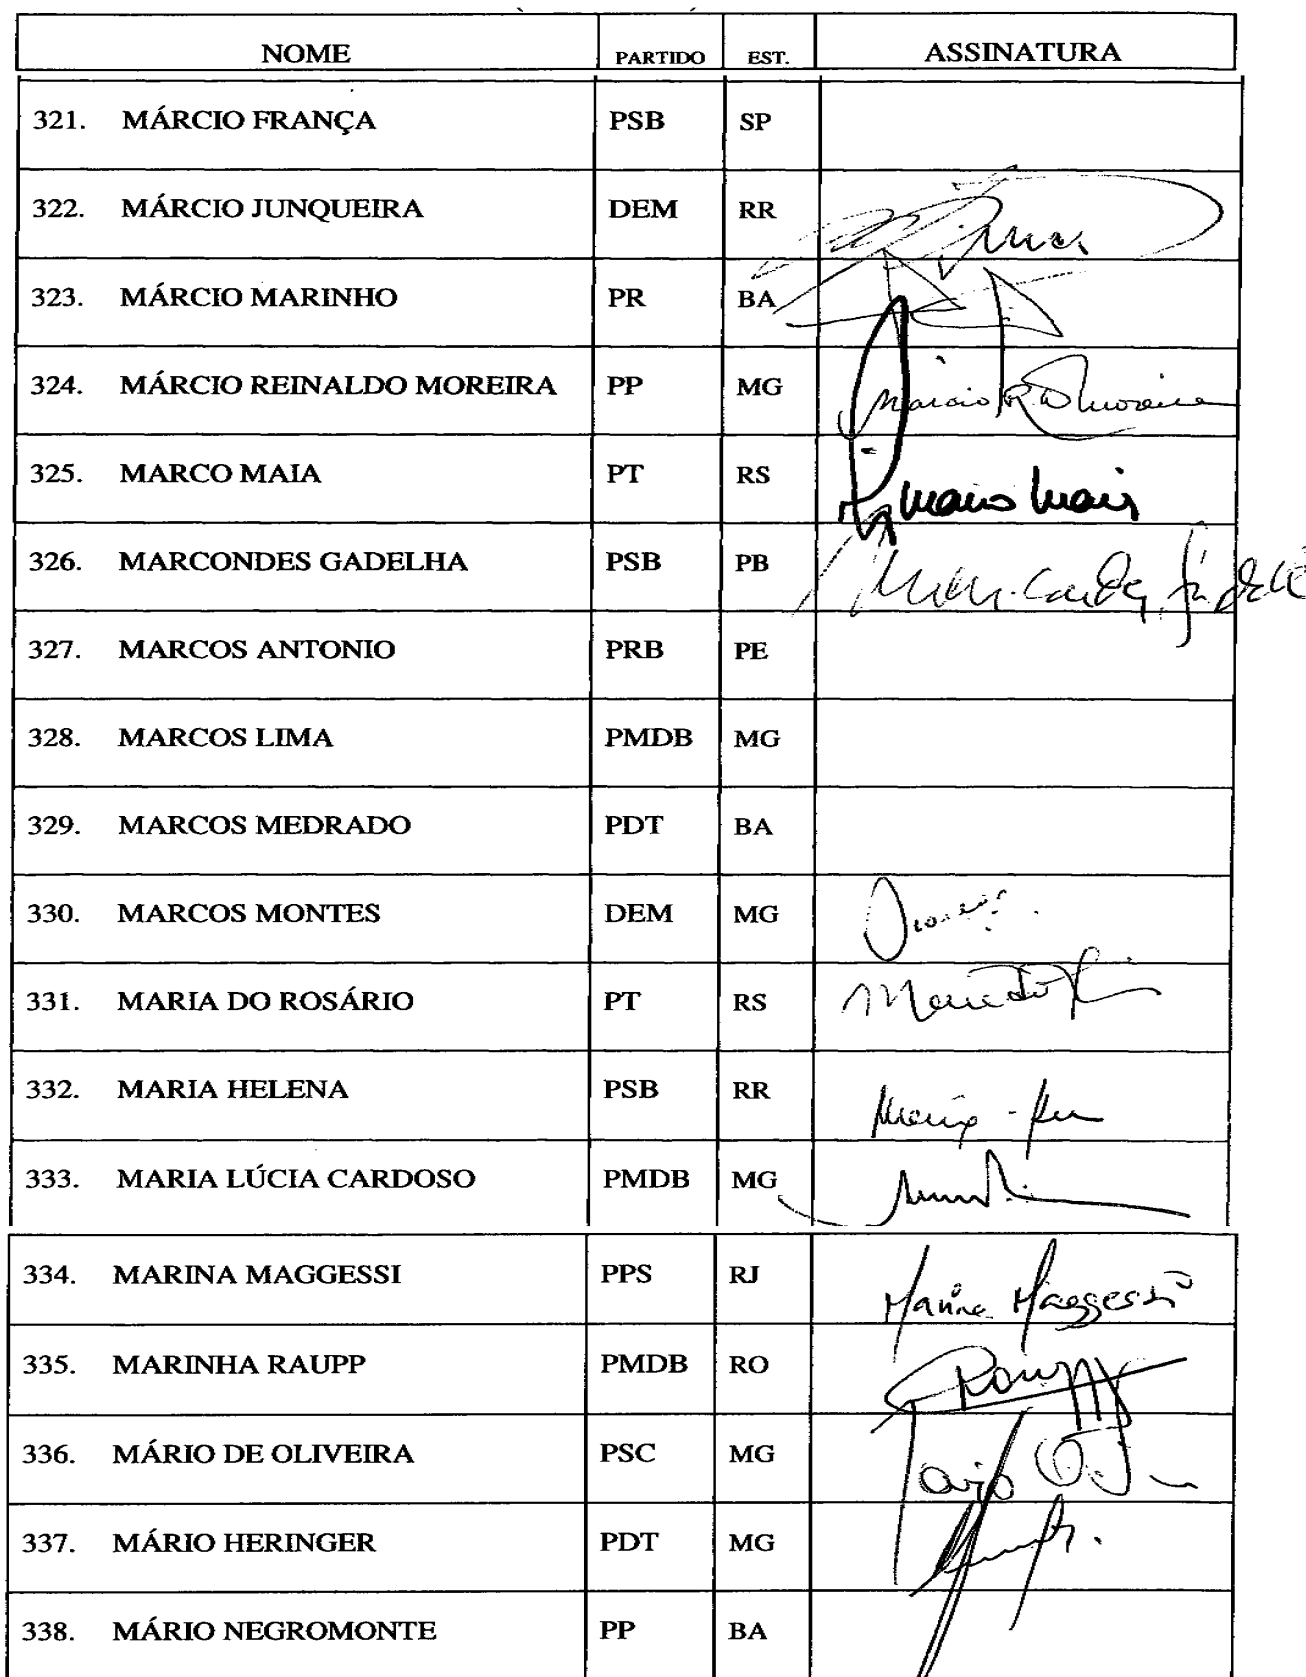 NOME PARTIDO EST. ASSINATURA
321. MÁRCIO FRANÇA PSB SP
322. MÁRCIO JUNQUEIRA DEM RR
323. MÁRCIO MARINHO PR BA
324. MÁRCIO REINALDO MOREIRA PP MG
325. MARCO MAIA PT RS
326. MARCONDES GADELHA PSB PB
327. MARCOS ANTONIO PRB PE
328. MARCOS LIMA PMDB MG
329. MARCOS MEDRADO PDT BA
330. MARCOS MONTES DEM MG
331. MARIA DO ROSÁRIO PT RS
332. MARIA HELENA PSB RR
333. MARIA LÚCIA CARDOSO PMDB MG
334. MARINA MAGGESSI PPS RJ Marina Maggessi
335. MARINHA RAUPP PMDB RO Raupp
336. MÁRIO DE OLIVEIRA PSC MG
337. MÁRIO HERINGER PDT MG
338. MÁRIO NEGROMONTE PP BA